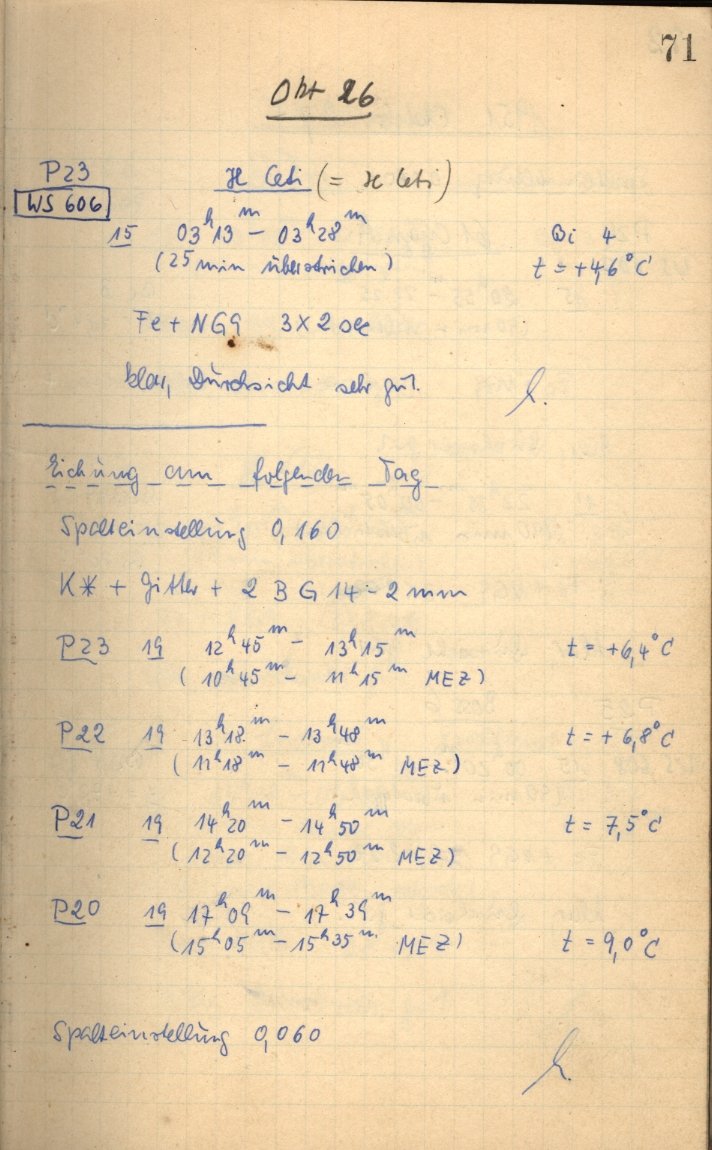 71
Okt 26
P23 ϰ Ceti (= ϰ Ceti)
WS 606
15 03h13m - 03h28m Bi 4
(25 min überstrichen) t = +4,6°C
Fe + NG9 3x2 sec
klar, Durchsicht sehr gut.
Eichung am folgenden Tag
Spalteinstellung 0,160
K* + Gitter + 2 BG 14 - 2 mm
P23 19 12h45m - 13h15m t = +6,4°C
(10h45m - 11h15m MEZ)
P22 19 13h18m - 13h48m t = +6,8°C
(11h18m - 11h48m MEZ)
P21 19 14h20m - 14h50m t = 7,5°C
(12h20m - 12h50m MEZ)
P20 19 17h09m - 17h39m
(15h05m - 15h35m MEZ) t = 9,0°C
Spalteinstellung 0,060